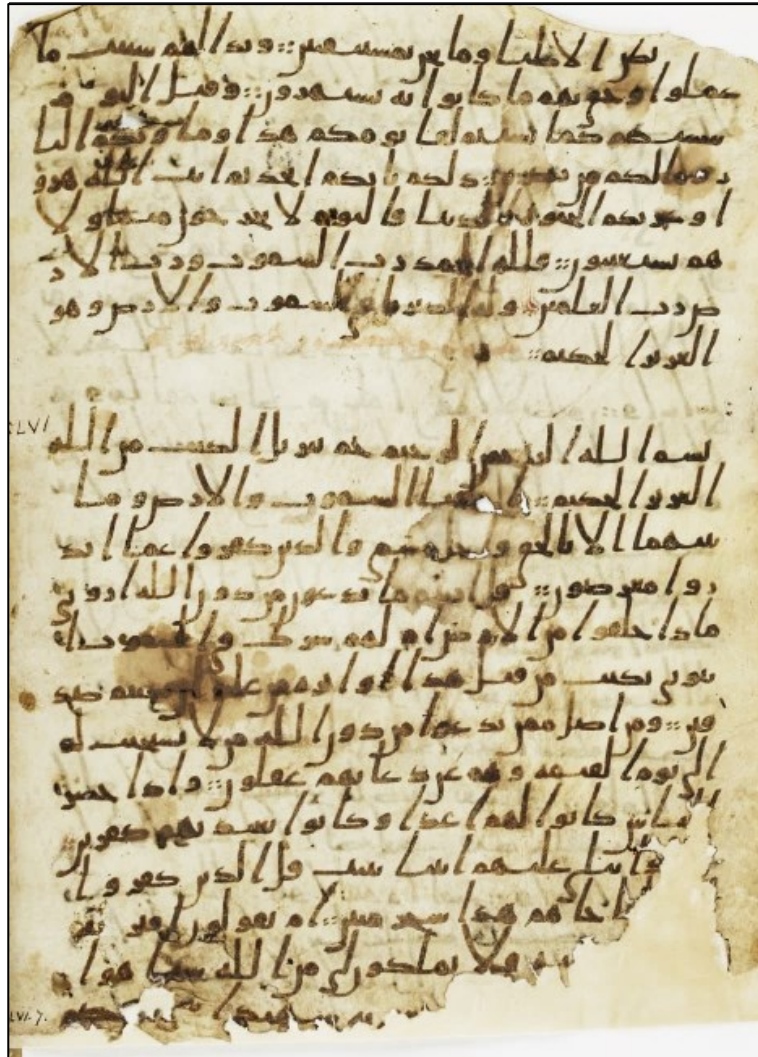 نظن الا ظنا وما نحن بمستيقنين :: وبدا لهم سيت ما
عملوا وحق بهم ما كانوا به يستهزون :: وقيل اليوم ن
نسيكم كما نسيتم لقا يومكم هذا وماويكم النا
ر وما لكم من نصرين :: ذلكم بانكم اتخذتم ايت الله هزو
ا وغرتكم الحيوة الدنيا فاليوم لا يخرجون منها ولا
هم يستعتبون :: فلله الحمد رب السموت ورب الار
ض رب العلمين :: وله الكبريا في السموت والارض وهو
العزيز الحكيم ::
LVI
بسم الله الرحمن الرحيم حم تنزيل الكتب من الله
العزيز الحكيم :: ما خلقنا السموت والارض وما
بينهما الا بالحق واجل مسمى والذين كفروا عما انذ
روا معرضون :: قل اريتم ما تدعون من دون الله اروني
ماذا خلقوا من الارض ام لهم شرك في السموت ا
يتوني بكتب من قبل هذا او اثرة من علم ان كنتم صد
قين :: ومن اضل ممن يدعوا من دون الله من لا يستجيب له
الى يوم القيمة وهم عن دعايهم غفلون :: واذا حشر
الناس كانوا لهم اعدا وكانوا بعبدتهم كفرين ::
تتلى عليهم ايتنا بينت قل الذين كفروا
جاهم هذا سحر مبين :: ام يقولون افتريه
فلا تملكون لي من الله شيا هو ا
LVI. 7. شهيدا